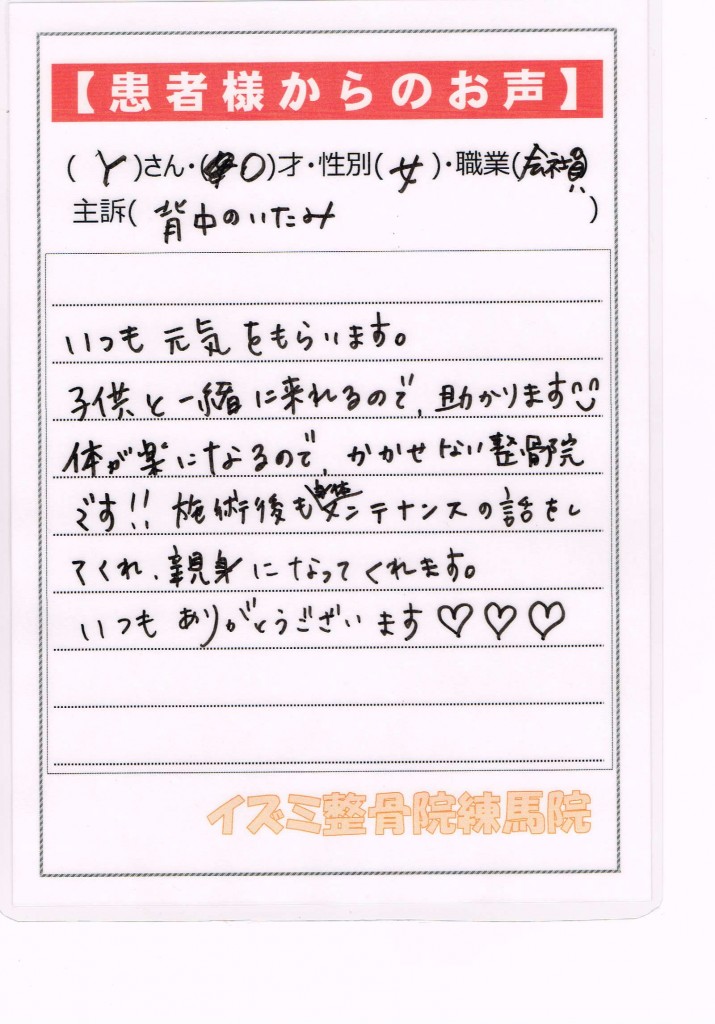 【患者様からのお声】
(Y)さん・(40)才・性別(女)・職業(会社員)
主訴(背中のいたみ)
いつも元気をもらいます。
子供と一緒に来れるので、助かります
体が楽になるので、かかせない整骨院
です!!施術後も身体メンテナンスの話をし
てくれ、親身になってくれます。
いつもありがとうございます♡♡♡
イズミ整骨院練馬院